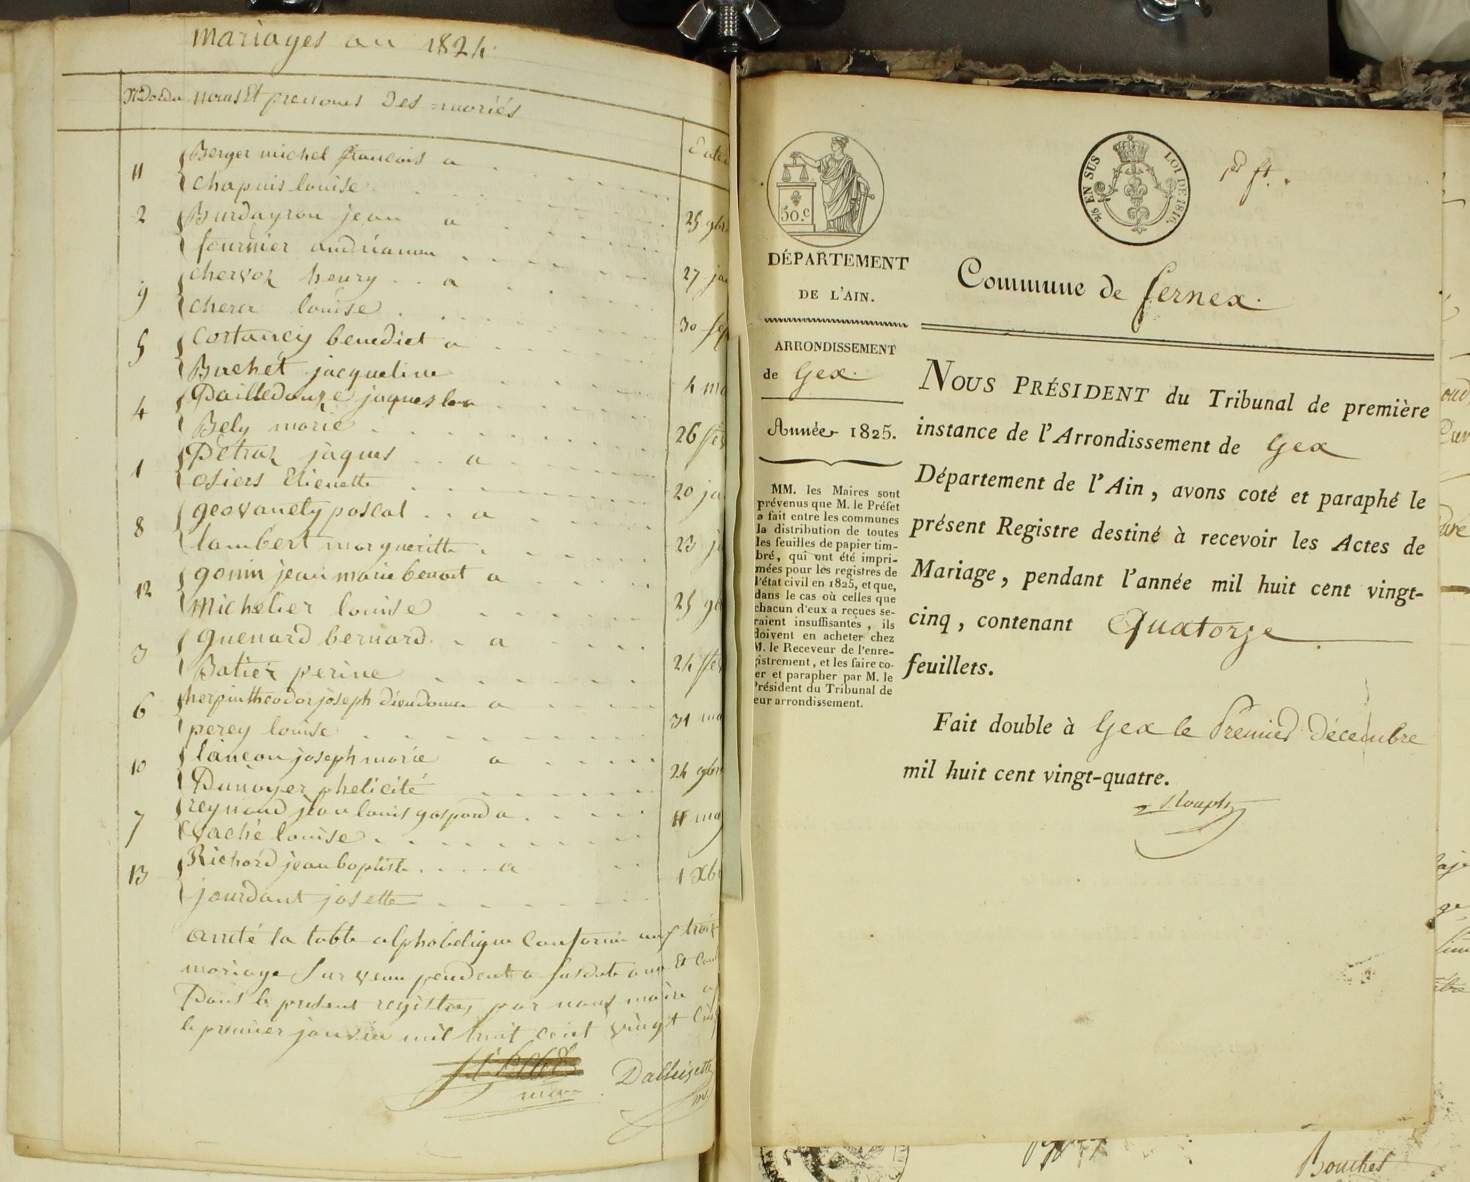 mariages an 1824.
Nos d'ordre noms et prenoms des mariés
Date
11 Berger michel francois a
chapuis louise
2 Burdayron jean a 25 9bre
fournier andrianne
9 chervoz henry a 27 ja
cherer louise
5 Costancy benedict a 30 sep
Buchét jacqueline
4 Dailledouze jaques a 4 ma
Bely marie
1 Detraz jaques a 26 fev
osiers Etienette
8 geovanety pascal a 20 ja
lambert margueritte
12 gonin jean marie benoit a 23 ju
michelier louise
3 guenard bernard a 25 9b
Batiez perine
6 herpin theodor joseph dieudonne a 24 fev
perey louise
10 lancon joseph marie a 31 ma
Dunoyer phelicité
7 reynaud jean louis gaspard a 24 9bre
vaché louise 11 may
13 Richard jean baptiste a 1 Xb
jourdant josette
arrété la table alphabetique
mariage survenu pendent
Dans le present registre, par nous maire
le premier janvier mil huit cent vingt cinq
maire
50.c
25 EN SUS
LOI DE 1816.
DÉPARTEMENT
DE L'AIN.
Commune de fernex.
ARRONDISSEMENT
de Gex.
Année 1825.
MM. les Maires sont
prévenus que M. le Préfet
a fait entre les communes
la distribution de toutes
les feuilles de papier tim-
bré, qui ont été impri-
mées pour les registres de
l'état civil en 1825, et que,
dans le cas où celles que
chacun d'eux a reçues se-
raient insuffisantes, ils
doivent en acheter chez
M. le Receveur de l'enre-
gistrement, et les faire co-
er et parapher par M. le
Président du Tribunal de
eur arrondissement.
NOUS PRÉSIDENT du Tribunal de première
instance de l'Arrondissement de Gex
Département de l'Ain, avons coté et paraphé le
présent Registre destiné à recevoir les Actes de
Mariage, pendant l'année mil huit cent vingt-
cinq, contenant Quatorze
feuillets.
Fait double à Gex le Premier Décembre
mil huit cent vingt-quatre.
Bouchet